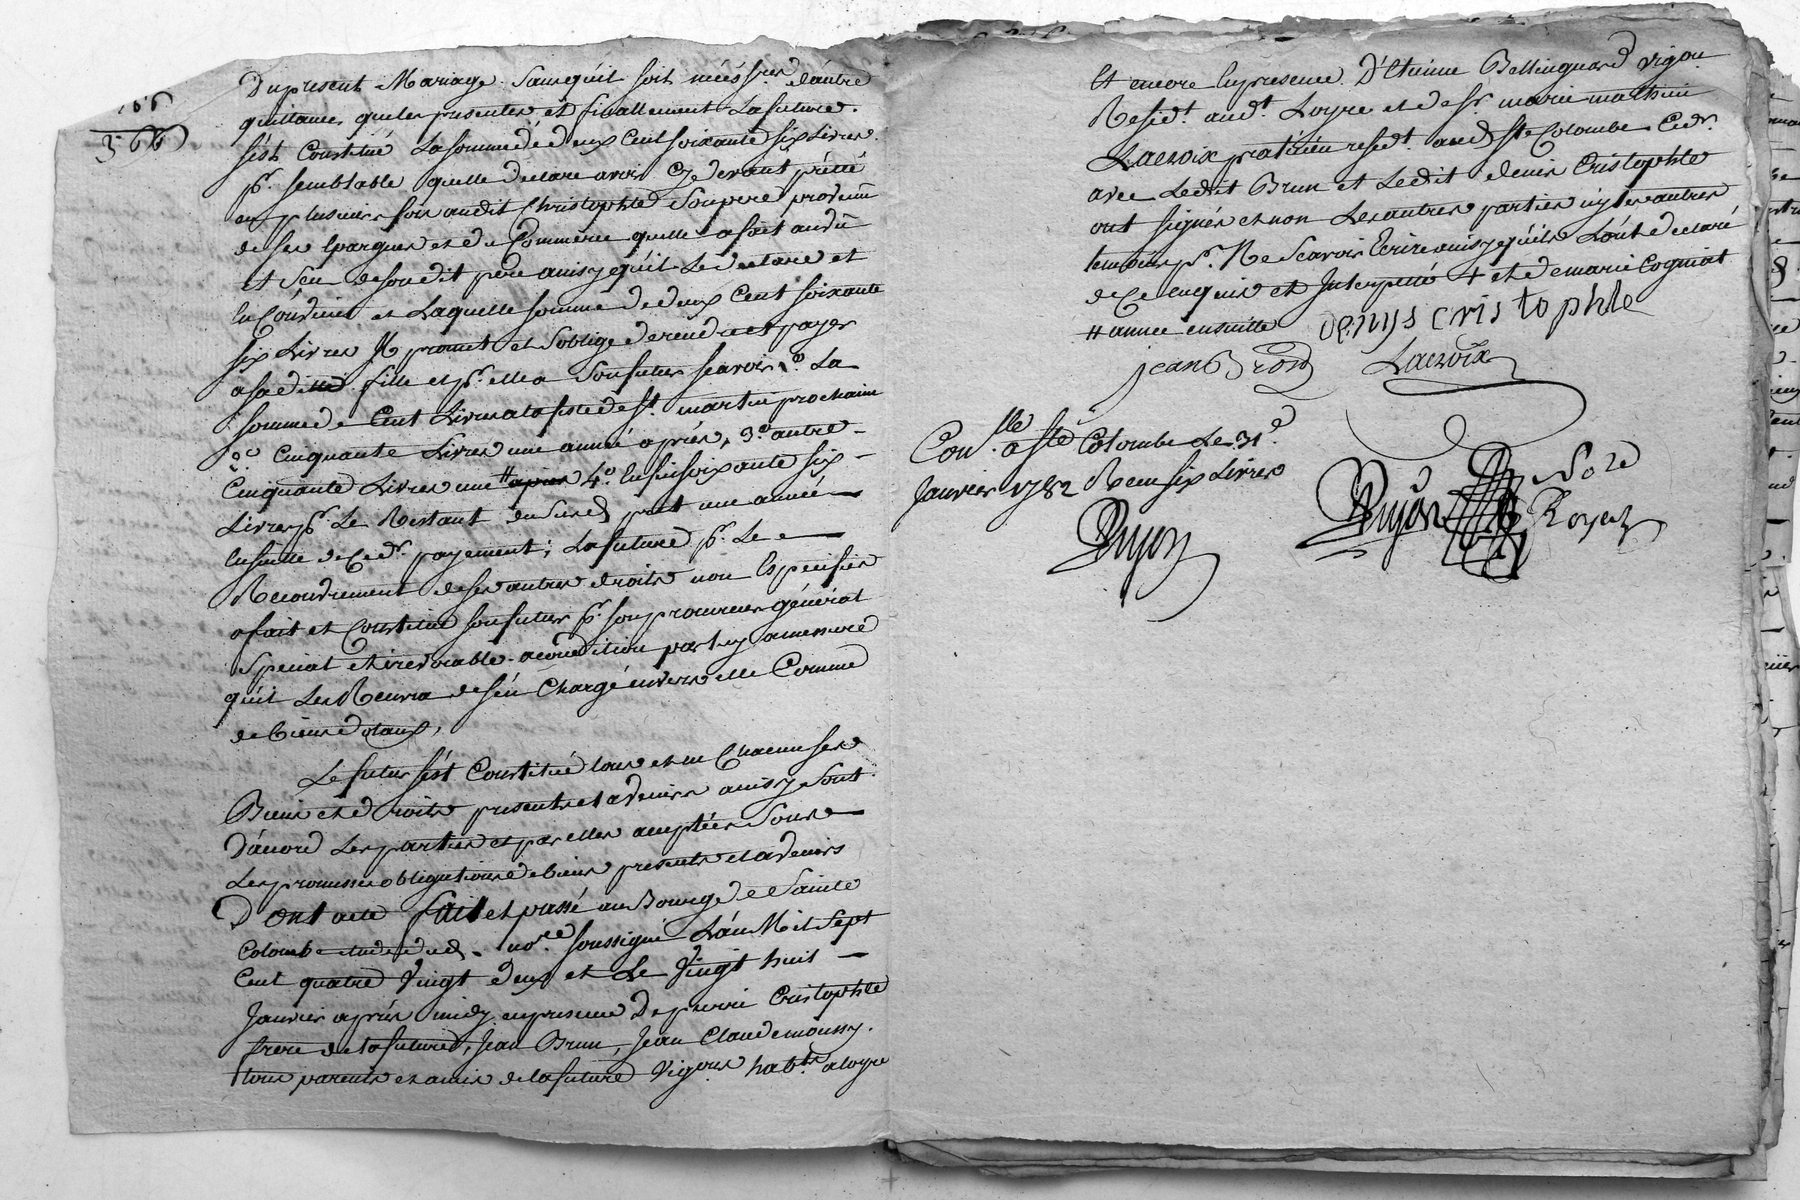 166
366
Dupresent Mariage Sans quil soit nécéss.re dautre
quittance que les presentes et finallement La future
sést Constitué La somme de deux Cent soixante six Livres
pr. semblable quelle declare avoir Cy devant prêtté
en plusieurs fois audit Christophle Son pere provenüe
de ses Epargnes et du Commerce quelle a fait au vû
et Sceu de son dit pere ainsy quil Le declare et
et Laquelle somme de deux Cent soixante
six Livres Il promet et soblige de rendre et payer
a sa ditte fille et pr. elle a Son futur scavoir 1o. La
somme de Cent Livres a la feste de St. martin prochain
2o. Cinquante Livres une année après, 3o. autre
Cinquante Livres une # après 4o. Enfin soixante six
Livres pr. Le Restant du Sus d. pret une année
Ensuitte de Ce dr. payement; La future pr. Le
Recouvrement de ses autres droits non Especifiés
a fait et Constitué son futur pr. son procureur général
Special et irrevocable a condition par luy a mesure
quil Les Recevra de sén Chargé envers elle Comme
de biens dotaux,
Le futur sést Constitué tous et un Chacun ses
Biens et droits presents et advenirs ainsy sont
Dácord Les parties et par elles acceptées Sous
Les promesses obligations de biens presents et advenirs
Dont acte fait et passé au Bourg de Sainte
Colombe etude dud. nore. soussigné L'án Mil Sept
Cent quatre Vingt deux et Le Vingt huit
Janvier après midy en presence De pierre Cristophle
frere de la future, Jean Brun, Jean Claude moussy
tous parents et amis de la future Vigons habts. a loyre
Et encore En presence D'Etienne Bellingeard vigon
Residt. aud. Loyre et de Sr. marie mathieu
Lacroix praticien resdt. aud St Colombe Cedr.
avec Ledit Brun et Ledit denis Cristophle
ont signés et non Les autres parties ny les autres
temoins pr. Ne Scavoir Ecrire ainsy quils L'ont declaré
de Ce enquis et Interpellé + et de marie Cogniat
# année ensuitte denys cristophle
jean Bron Lacroix
Conlle. a Ste Colombe Le 31e
Janvier 1782 Recu six Livres
Dujon
Dujon No re
Royal